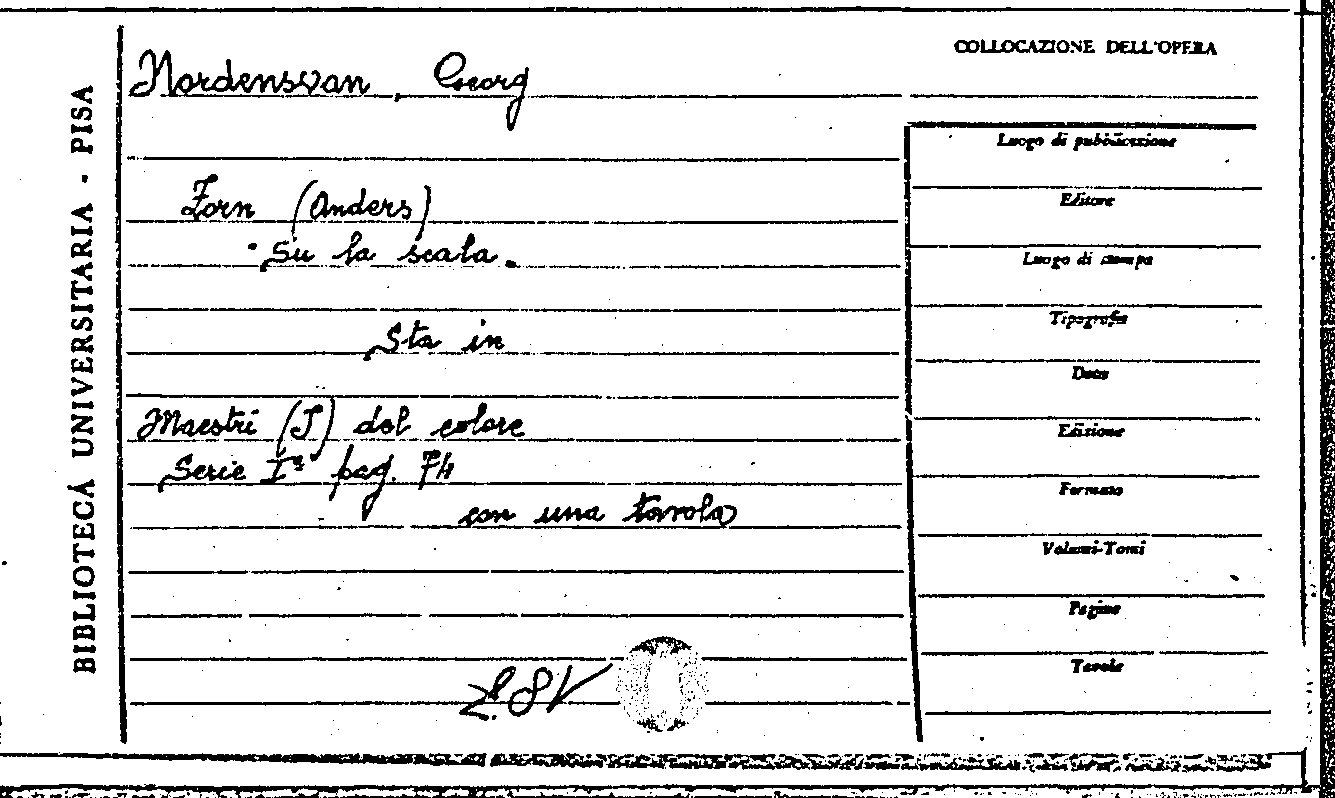 BIBLIOTECA UNIVERSITARIA - PISA
Nordensvan, Georg
Zorn (Anders)
Su la scala.
Sta in
Maestri (I) del colore
Serie Iª pag. 74
con una tavola
COLLOCAZIONE DELL'OPERA
Luogo di pubblicazione
Editore
Luogo di stampa
Tipografia
Data
Edizione
Formato
Volumi-Tomi
Pagine
Tavole